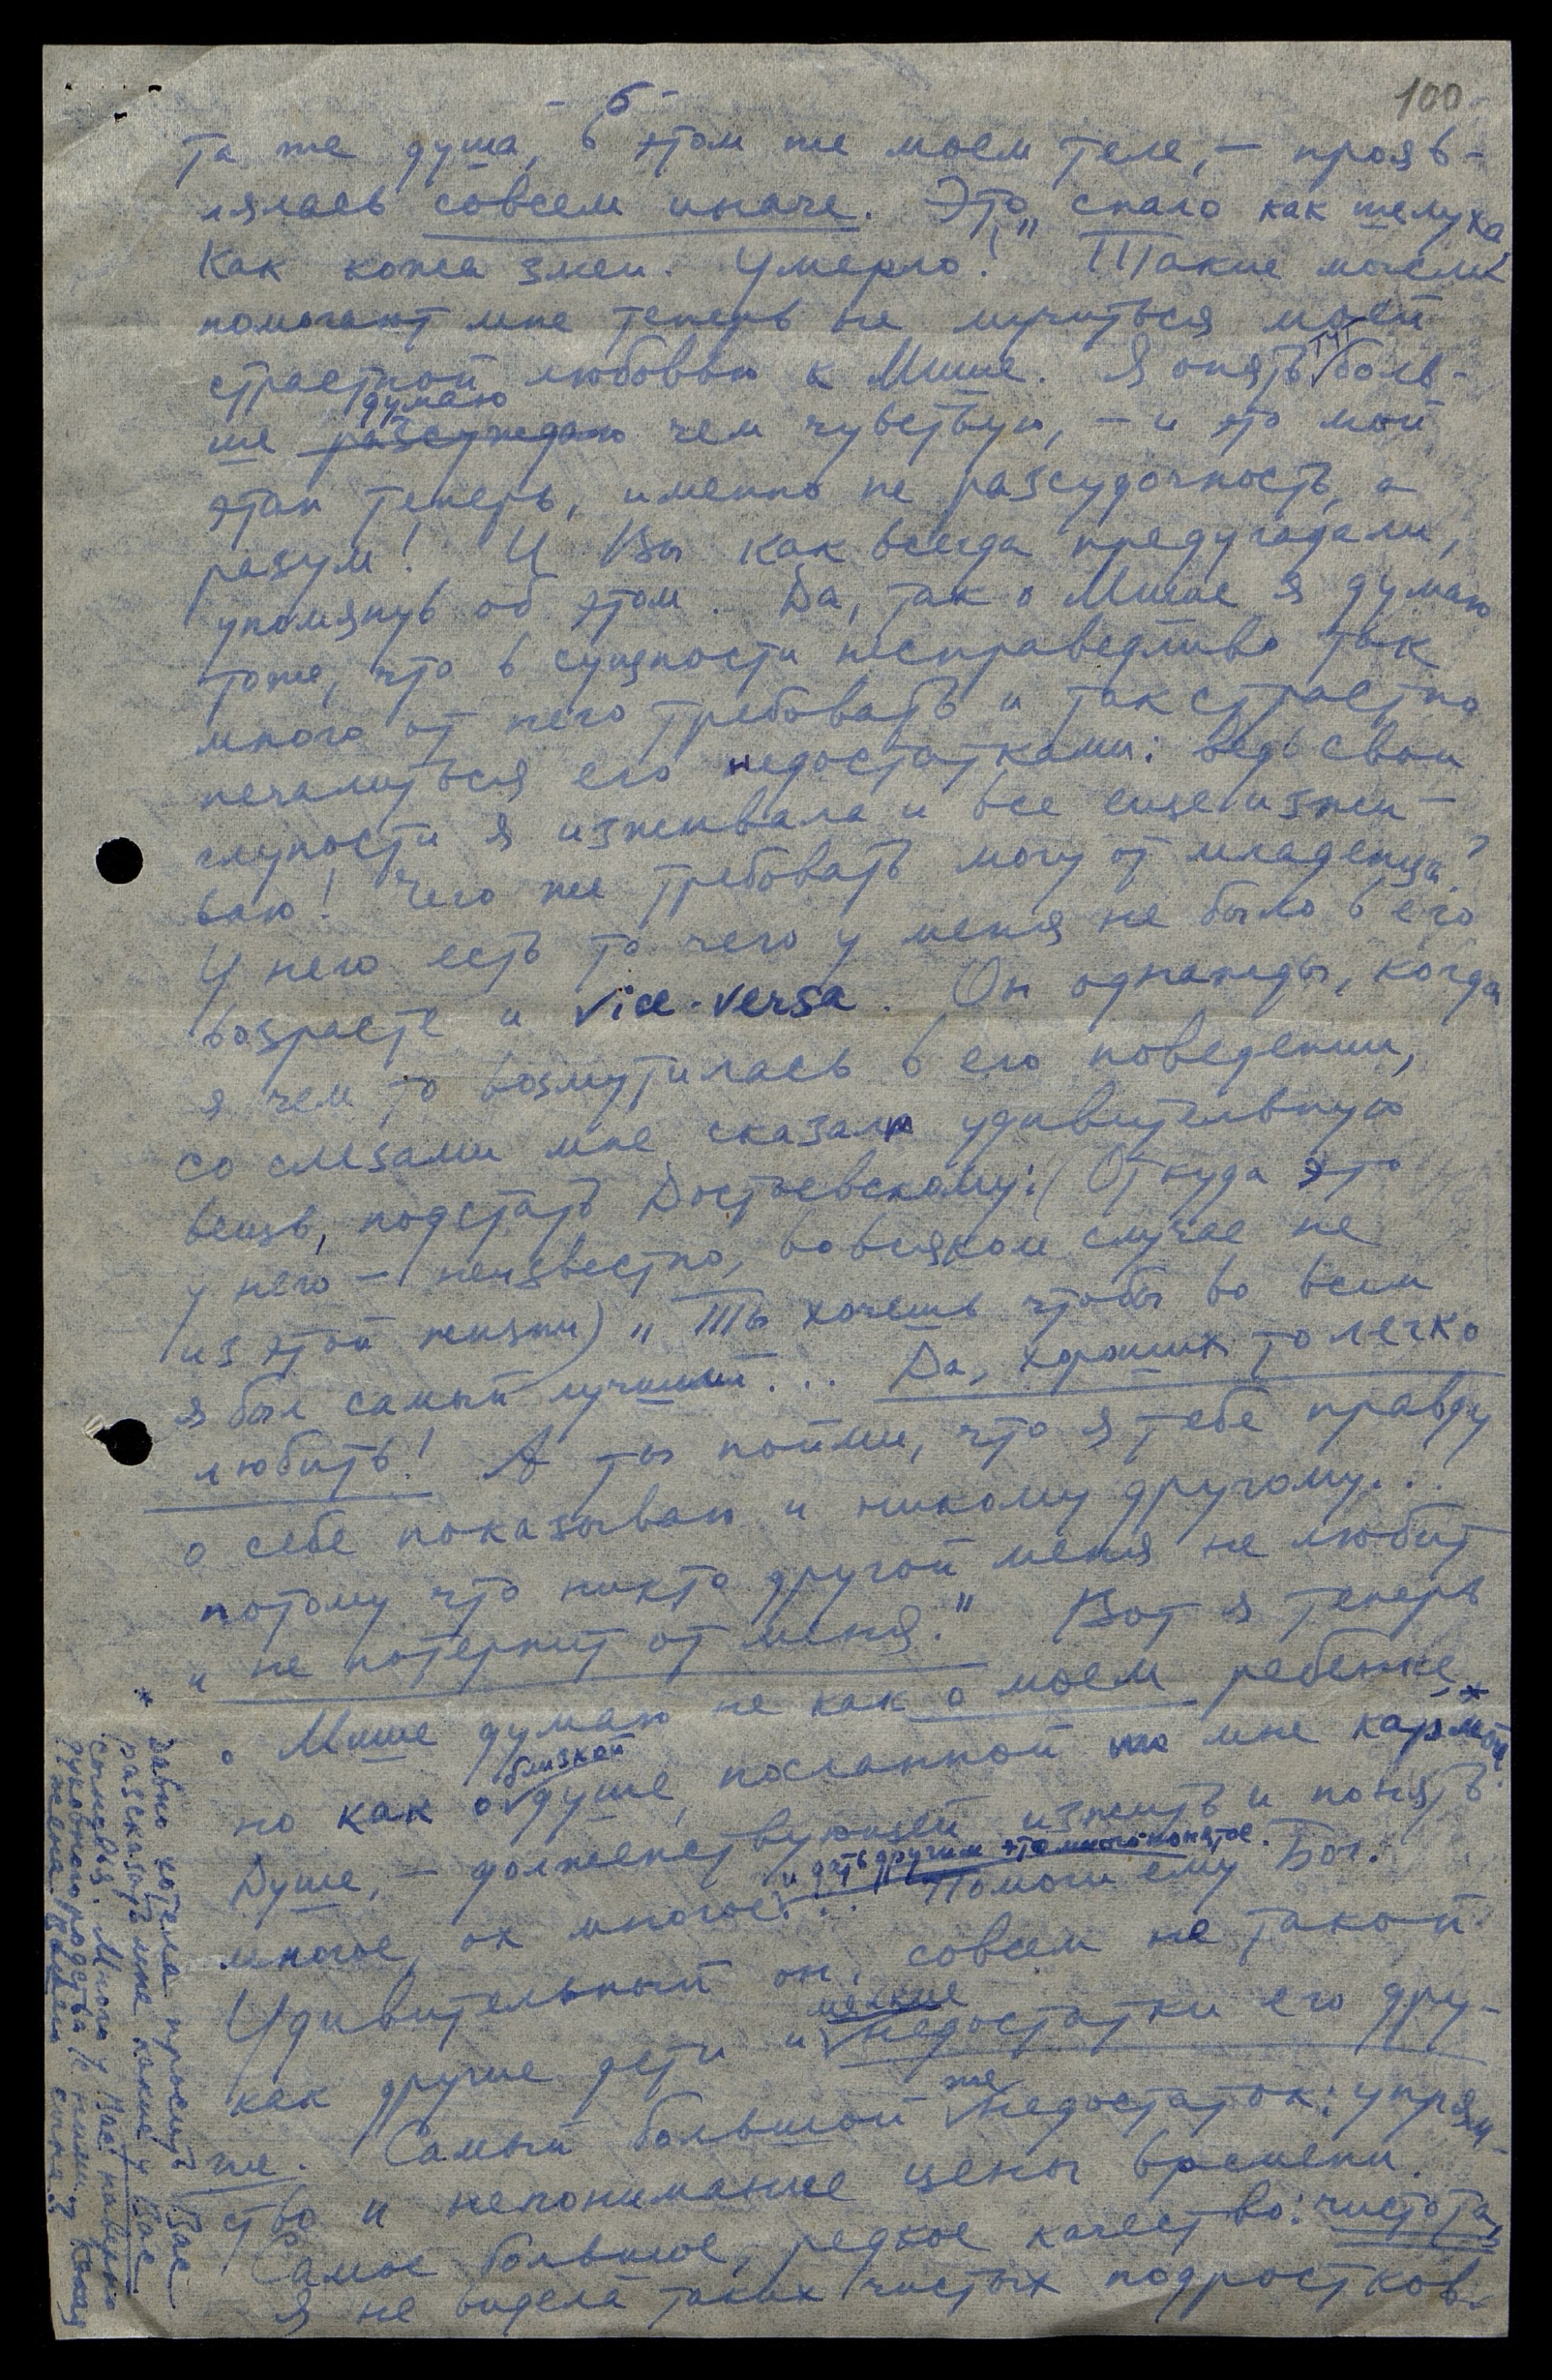 - 6 -
100
та же душа, в этом же моем теле, – прояв-
лялась совсем иначе. Это „спало как шелуха
Как кожа змеи. Умерло! Такие мысли
помогают мне теперь не мучиться моей
страстной любовью к Мише. Я опять тут боль-
ше разсуждаю думаю чем чувствую, – и это мой
этап теперь, именно не разсудочность, а
разум! И Вы как всегда предугадали,
упомянув об этом. Да, так о Мише я думаю
тоже, что в сущности несправедливо так
много от него требовать и так страстно
печалиться его недостатками: ведь свои
глупости я изживала и все еще изжи-
ваю! Чего же требовать могу от младенца?
У него есть то чего у меня не было в его
возрасте и vice-versa. Он однажды, когда
я чем то возмутилась в его поведении,
со слезами мне сказал удивительную
вещь, подстать Достоевскому: (Откуда это
у него – неизвестно, во всяком случае не
из этой жизни) „Ты хочешь чтобы во всем
я был самый лучший... Да, хороших то легко
любить! А ты пойми, что я тебе правду
о себе показываю и никому другому...
потому что никто другой меня не любит
и не потерпит от меня." Вот я теперь
о Мише думаю не как о моем ребенке,*
но как о близкой душе, посланной мне кармой.
Душе, – долженствующей изжить и понять
многое, ох многое!... и дать другим это много-понятое. Помоги ему Бог.
Удивительный он, совсем не такой
как другие дети и мелкие недостатки его дру-
же. Самый большой же недостаток: упрям-
ство и непонимание цены времени.
Самое большое, редкое качество: чистота,
я не видела таких чистых подростков.
* Давно хотела просить Вас
разсказать мне какие у Вас
сыновья. Много у Вас наверно
духовного родства с ними? Какая
жена Вашего сына?